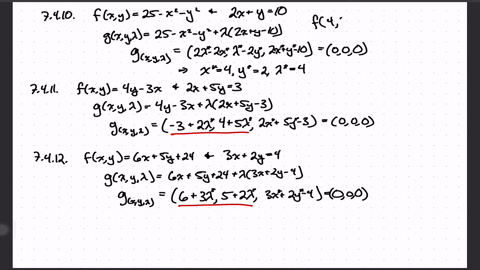 7.4.10. f(x,y) = 25 - x² - y² & 2x + y = 10 f(4,
g(x,y,λ) = 25 - x² - y² + λ(2x + y - 10)
g(x,y,λ) = (2λ* - 2x*, λ* - 2y*, 2x* + y* - 10) = (0,0,0)
⇒ x* = 4, y* = 2, λ* = 4
7.4.11. f(x,y) = 4y - 3x & 2x + 5y = 3
g(x,y,λ) = 4y - 3x + λ(2x + 5y - 3)
g(x,y,λ) = (-3 + 2λ*, 4 + 5λ*, 2x* + 5y* - 3) = (0,0,0)
7.4.12. f(x,y) = 6x + 5y + 24 & 3x + 2y = 4
g(x,y,λ) = 6x + 5y + 24 + λ(3x + 2y - 4)
g(x,y,λ) = (6 + 3λ*, 5 + 2λ*, 3x* + 2y* - 4) = (0,0,0)